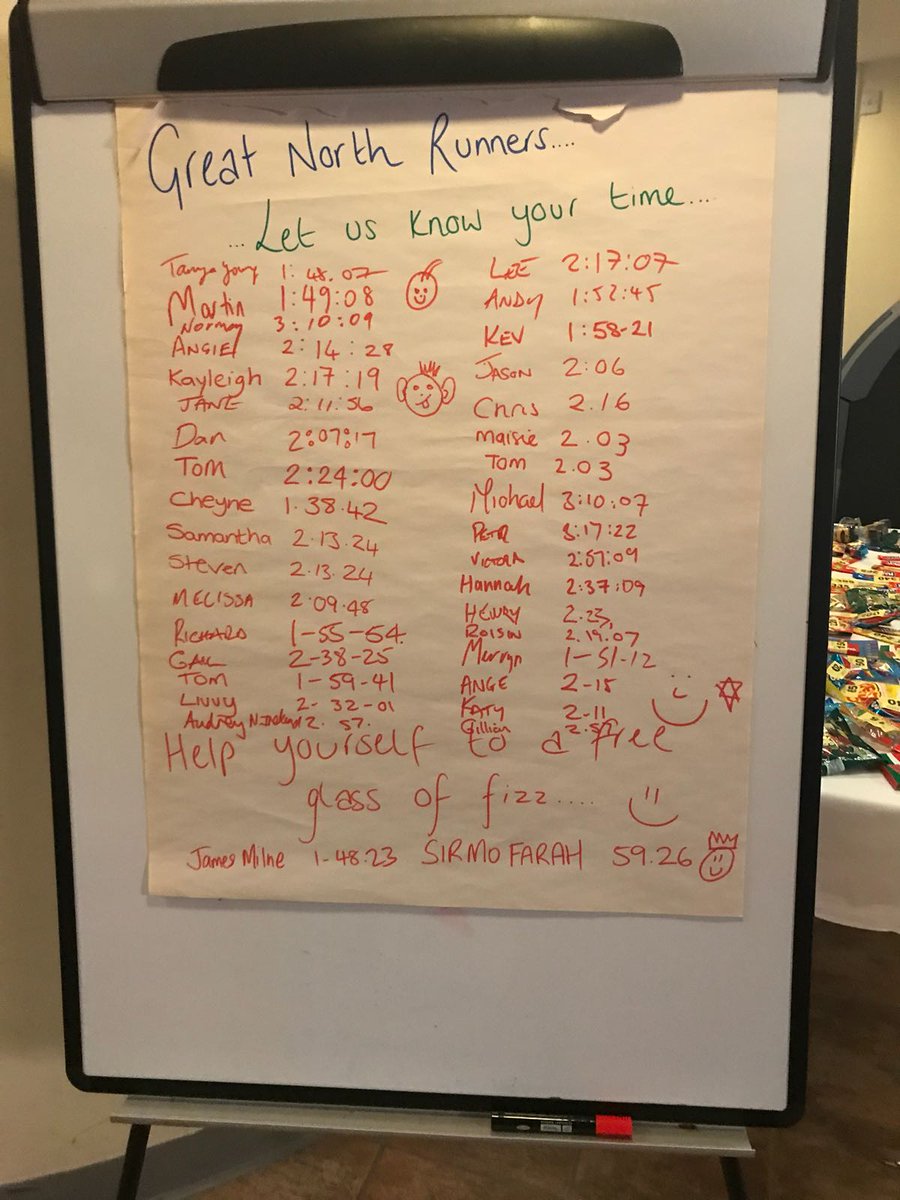 Great North Runners....
...Let us know your time...
Tanya 1:48.07
Martin 1:49:08
Norman 3:10:09
ANGIE 2:14:28
Kayleigh 2:17:19
JANE 2:11:56
Dan 2:07:17
TOM 2:24:00
Cheyne 1.38.42
Samantha 2.13.24
Steven 2.13.24
MELISSA 2.09.48
RICHARD 1-55-54
GAIL 2-38-25
TOM 1-59-41
LIVVY 2-32-01
Audrey 2.57.
LEE 2:17:07
ANDY 1:52:45
KEV 1:58-21
JASON 2:06
Chris 2.16
Maisie 2.03
TOM 2.03
Michael 3:10:07
PETR 3:17:22
VICTORIA 2:57:09
Hannah 2:37:09
HENRY 2.23,
ROISIN 2.19.07
Mervyn 1-51-12
ANGE 2-15
KATY 2-11
Gillian
Help yourself to a free
glass of fizz....
James Milne 1-48.23 SIR MO FARAH 59.26